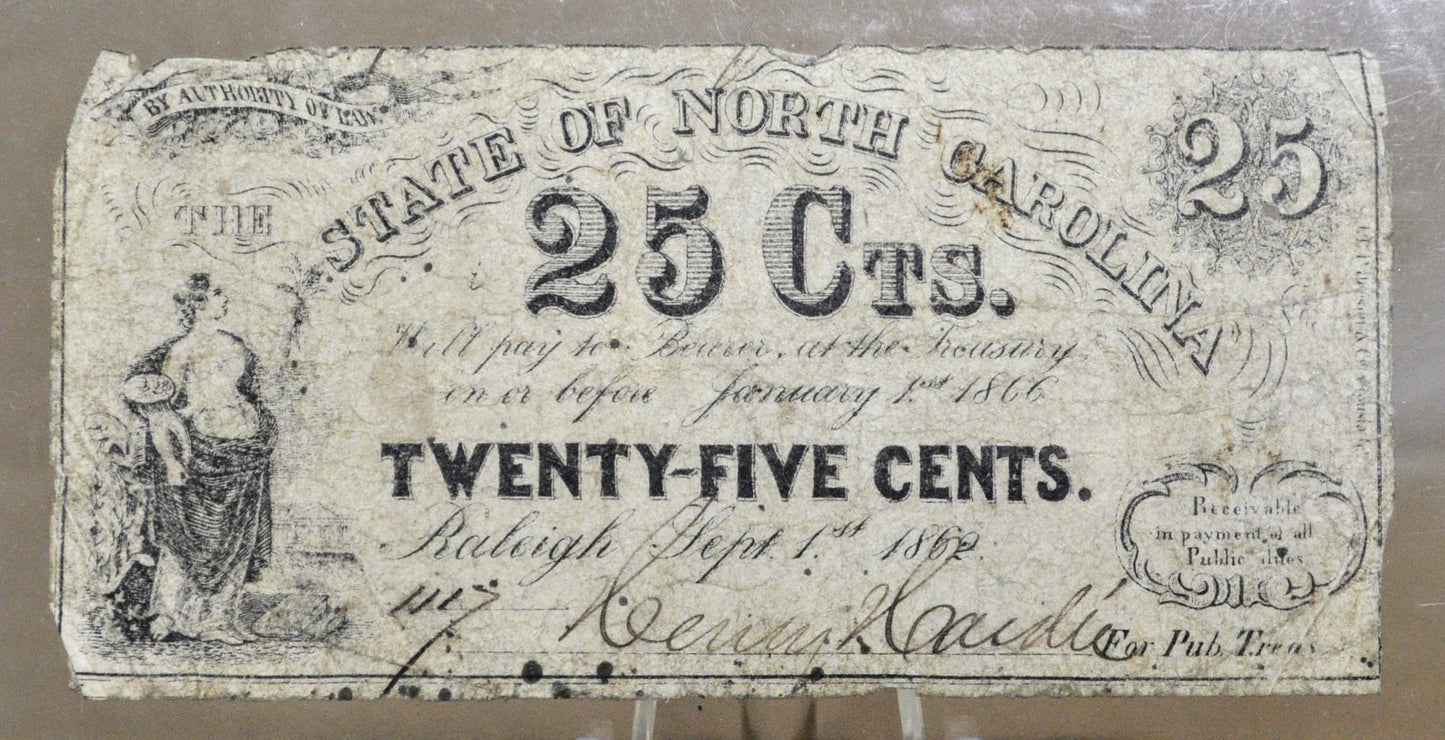 BY AUTHORITY OF LAW.
THE
STATE OF NORTH CAROLINA
25
25 CTS.
Will pay to Bearer, at the Treasury
on or before January 1.st 1866
TWENTY-FIVE CENTS.
Raleigh Sept. 1.st 1862.
Receivable
in payment of all
Public dues
1117
Henry Hardie
For Pub. Treas